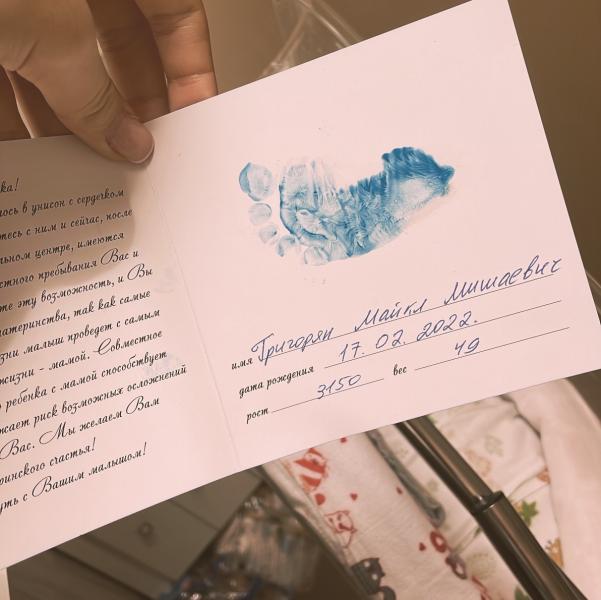 ка!
лось в унисон с сердечком
тесь с ним и сейчас, после
льном центре, имеются
стного пребывания Вас и
те эту возможность, и Вы
материнства, так как самые
зни малыш проведет с самым
жизни - мамой. Совместное
ребенка с мамой способствует
жает риск возможных осложнений
Вас. Мы желаем Вам
ринского счастья!
уть с Вашим малышом!
имя Григорян Майкл Мишаевич
дата рождения 17. 02. 2022.
рост 3150 вес 49